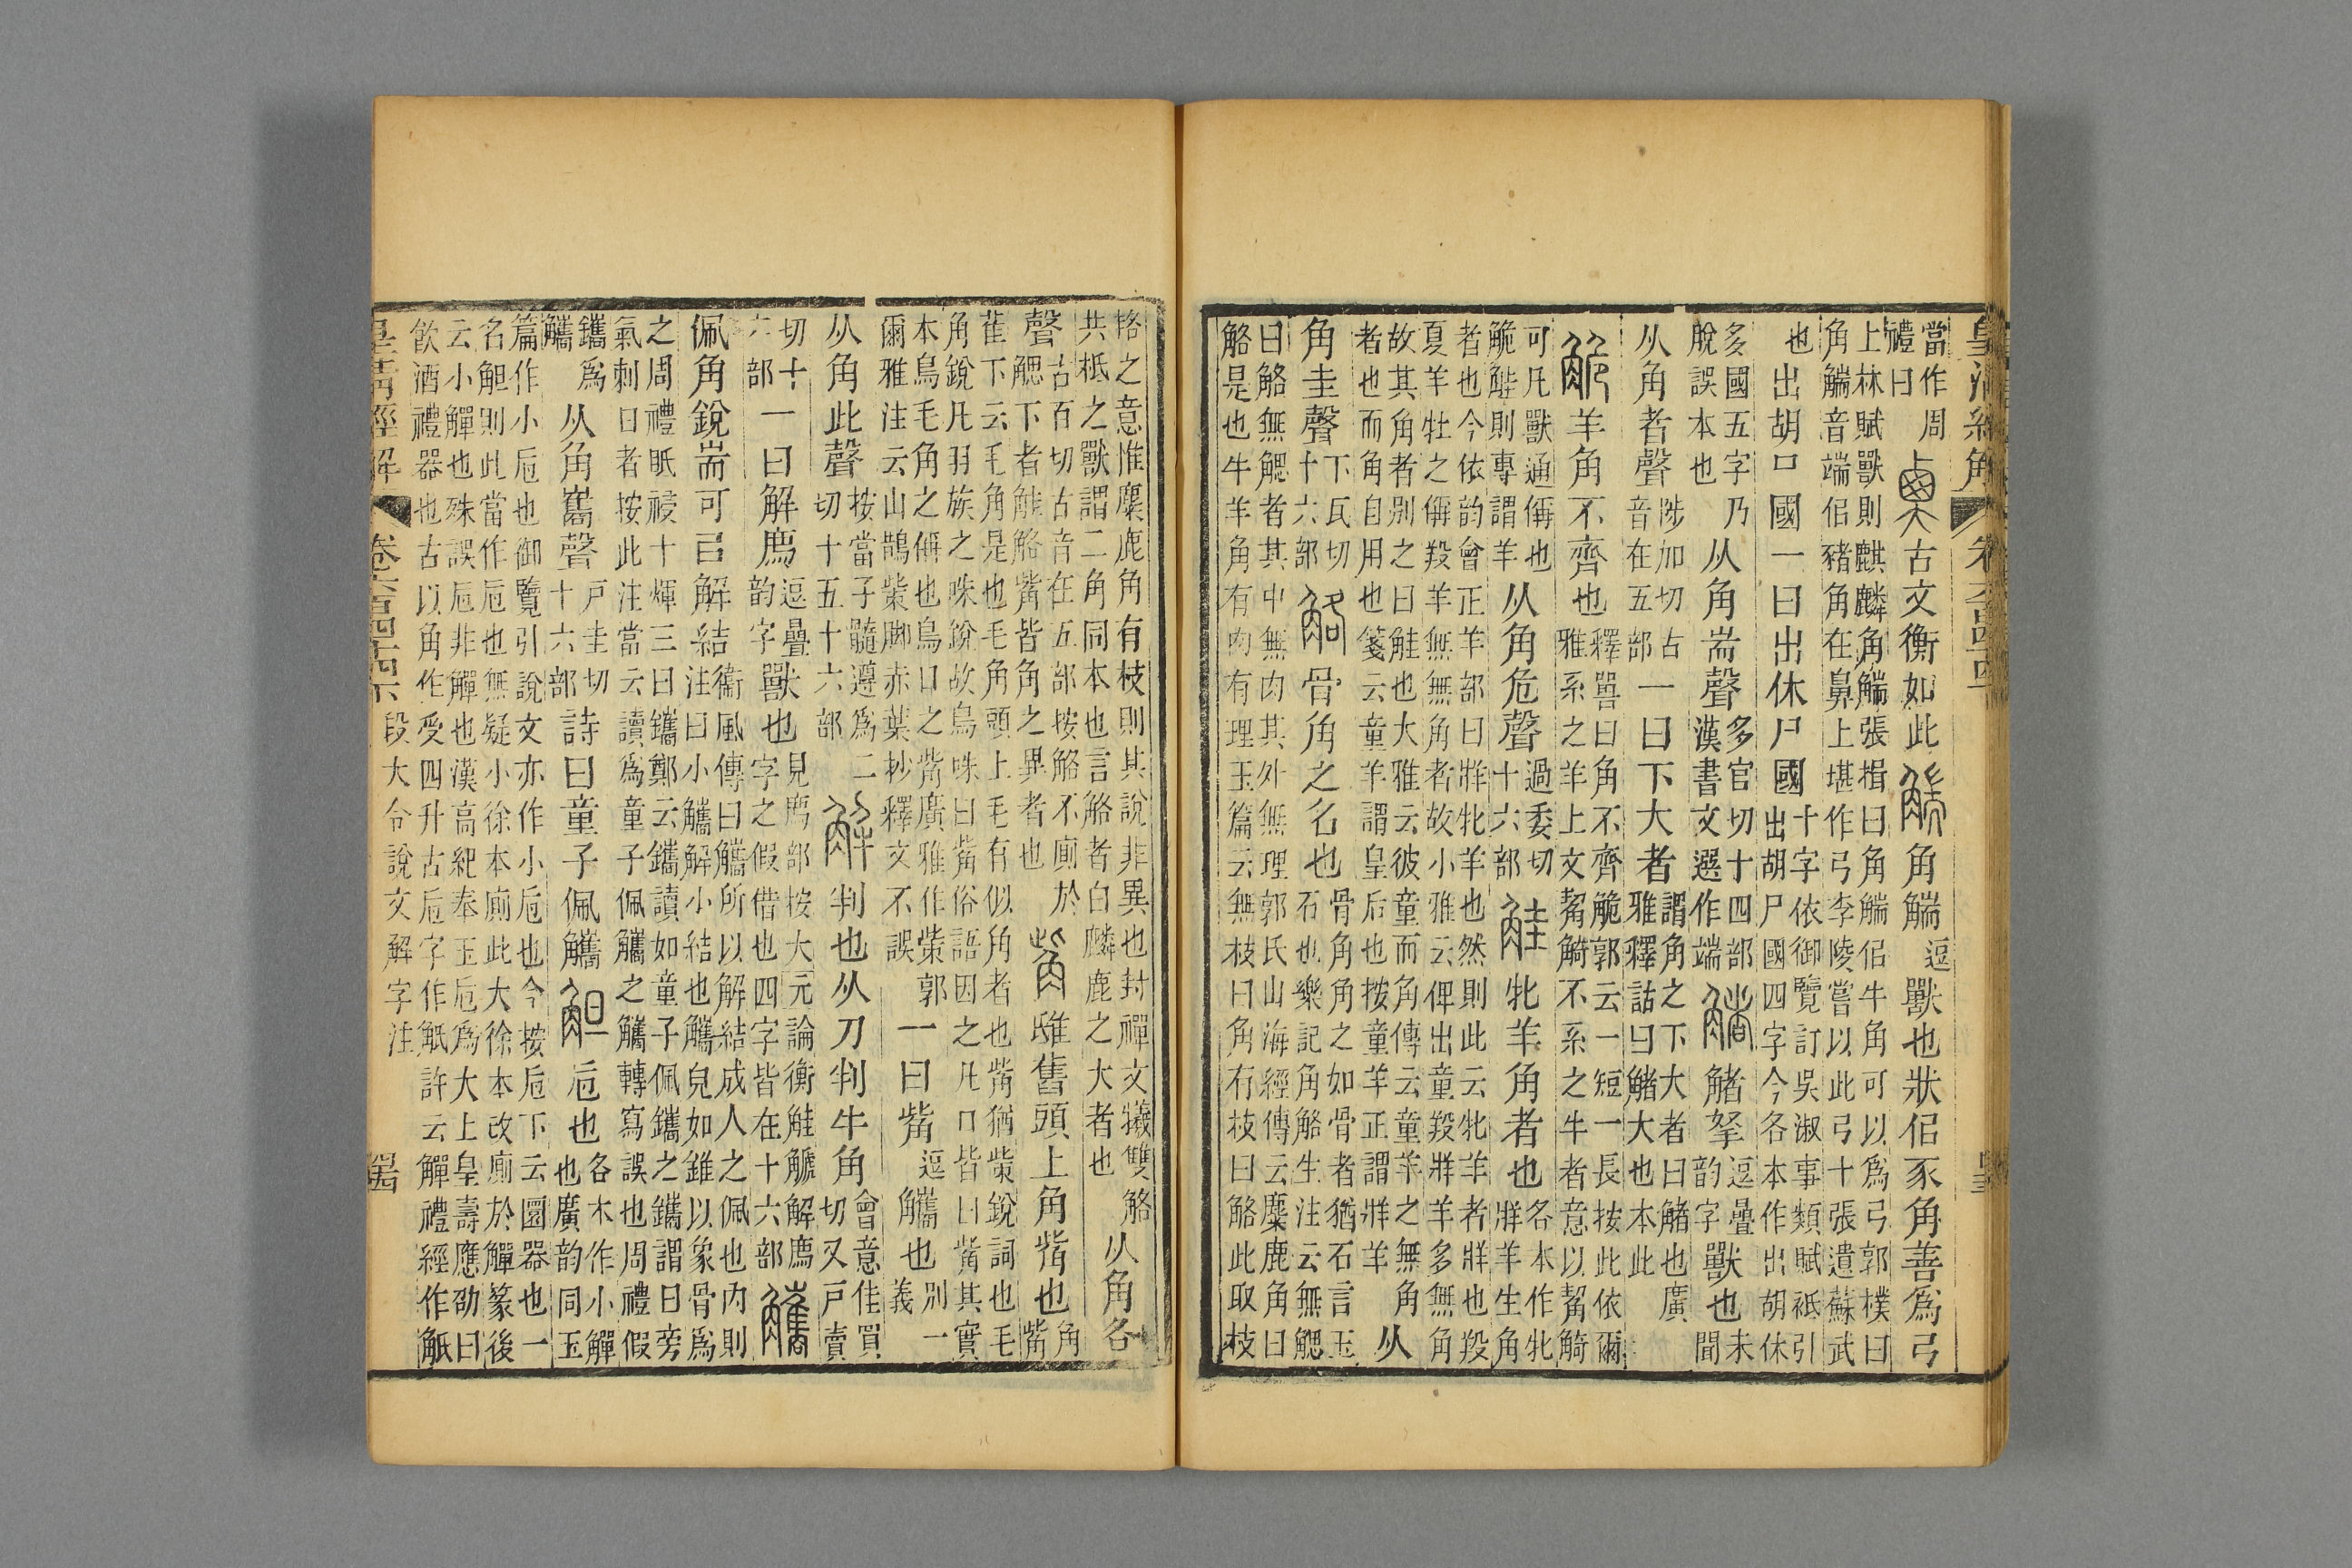 皇清經解 卷六百四十四
當作周禮曰 古文衡如此 角觿逗獸也狀佀豕角善爲弓
上林賦獸則麒麟角觿張揖曰角觿佀牛角可以爲弓郭樸曰
角觿音端佀豬角在鼻上堪作弓李陵嘗以此弓十張遺蘇武
也出胡口國一曰出休尸國十字依御覽訂吳淑事類賦衹引
出胡尸國四字今各本作出胡休
多國五字乃脫誤本也 从角耑聲多官切十四部漢書文選作端 觰拏逗疊韵字獸也未聞
从角者聲陟加切古音在五部 一曰下大者謂角之下大者曰觰也廣雅釋詁曰觰大也本此
羊角不齊也釋嘼曰角不齊觤郭云一短一長按此依爾
雅系之羊上文觢觭不系之牛者意以觢觭
可凡獸通偁也觤觟則專謂羊 从角危聲過委切十六部 牝羊角者也各本作牝牂羊生角
者也今依韵會正羊部曰牂牝羊也然則此云牝羊者牂也羖
夏羊牡之偁羖羊無無角者故小雅云俾出童羖牂羊多無角
故其角者别之曰觟也大雅云彼童而角傳云童羊之無角
者也而角自用也箋云童羊謂皇后也按童羊正謂牂羊 从
角圭聲下瓦切十六部 骨角之名也骨角角之如骨者猶石言玉
石也樂記角觡生注云無䚡
曰觡無䚡者其中無肉其外無理郭氏山海經傳云麋鹿角曰
觡是也牛羊角有肉有理玉篇云無枝曰角有枝曰觡此取枝
挌之意惟麋鹿角有枝則其說非異也封禪文犧雙觡
共柢之獸謂二角同本也言觡者白麟鹿之大者也 从角各
聲古百切古音在五部按觡不廁於 雎舊頭上角觜也角觜
䚡下者觟觡觜皆角之異者也
雈下云毛角是也毛角頭上毛有似角者也觜猶柴銳詞也毛
角銳凡羽族之咮銳故鳥咮曰觜俗語因之凡口皆曰觜其實
本鳥毛角之偁也鳥口之觜廣雅作柴郭
爾雅注云山鵲柴腳赤葉抄釋文不誤 一曰觜逗觿也別一義
从角此聲按當子髓遵爲二切十五十六部 判也从刀判牛角會意佳買切又戶賣
切十六部 一曰解廌逗疊韵字獸也見廌部按大元論衡觟䚦解廌
字之假借也四字皆在十六部
佩角銳耑可㠯解結衞風傳曰觿所以解結成人之佩也内則
注曰小觿解小結也觿皃如錐以象骨爲
之周禮眡祲十煇三曰鑴鄭云鑴讀如童子佩鑴之鑴謂日旁
氣刺日者按此注當云讀爲童子佩觿之觿轉寫誤也周禮假
鑴爲觿 从角巂聲戶圭切十六部 詩曰童子佩觿 卮也各本作小觶也廣韵同玉
篇作小卮也御覽引說文亦作小卮也今按卮下云圜器也一
名觛則此當作卮也無疑小徐本廁此大徐本改廁於觶篆後
云小觶也殊誤卮非觶也漢高紀奉玉卮爲大上皇壽應劭曰
飲酒禮器也古以角作受四升古卮字作觝許云觶禮經作觝
皇清經解 卷六百四十四 段大令說文解字注